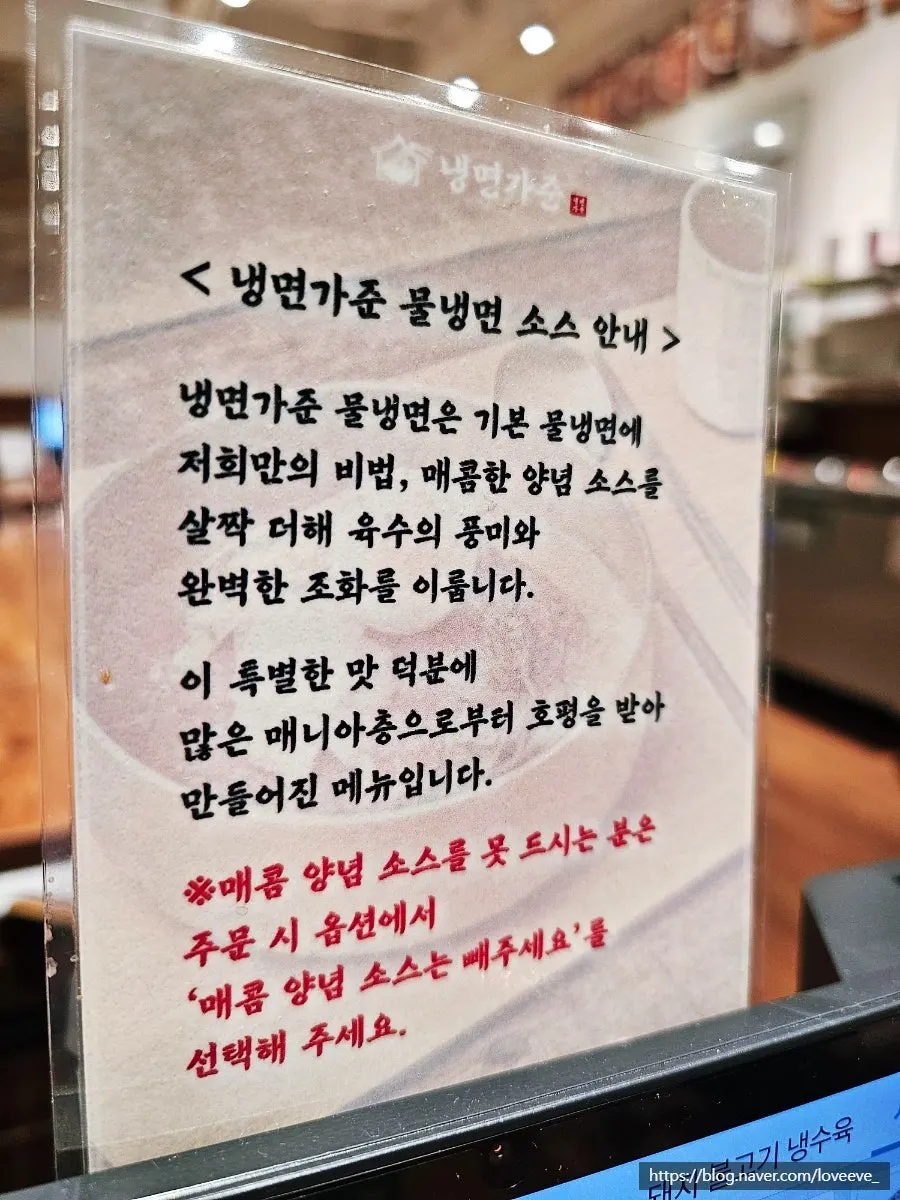 냉면가준
< 냉면가준 물냉면 소스 안내 >
냉면가준 물냉면은 기본 물냉면에
저희만의 비법, 매콤한 양념 소스를
살짝 더해 육수의 풍미와
완벽한 조화를 이룹니다.
이 특별한 맛 덕분에
많은 매니아층으로부터 호평을 받아
만들어진 메뉴입니다.
※매콤 양념 소스를 못 드시는 분은
주문 시 옵션에서
‘매콤 양념 소스는 빼주세요’를
선택해 주세요.
돼지 불고기 냉수육
https://blog.naver.com/loveeve_